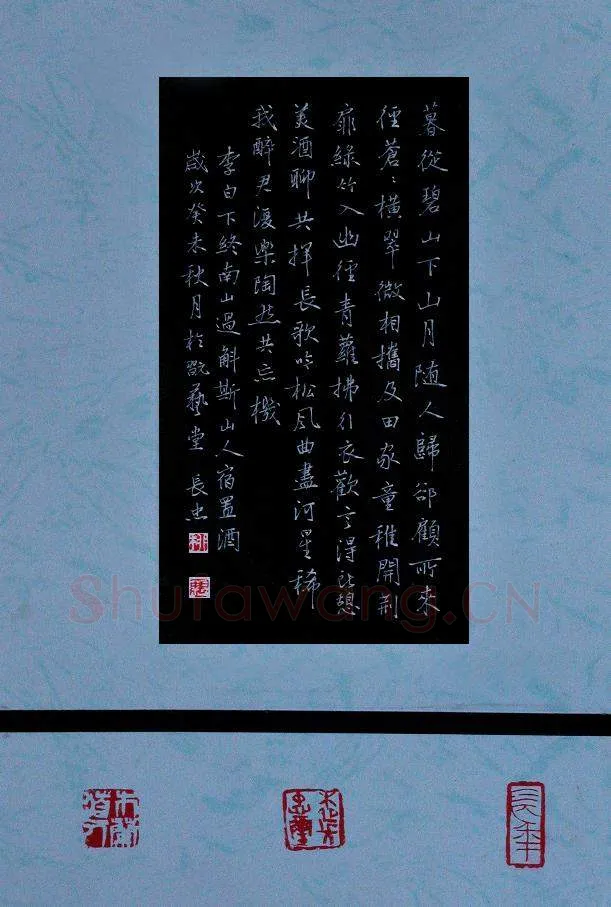 暮從碧山下山月随人歸卻顧所来
徑蒼〻橫翠微相攜及田家童稚開荆
扉綠竹入幽徑青蘿拂行衣歡言得所憩
美酒聊共揮長歌吟松風曲盡河星稀
我醉君復樂陶然共忘機
李白下終南山過斛斯山人宿置酒
歲次癸未秋月於翫藝堂 長忠
Shufawang.CN